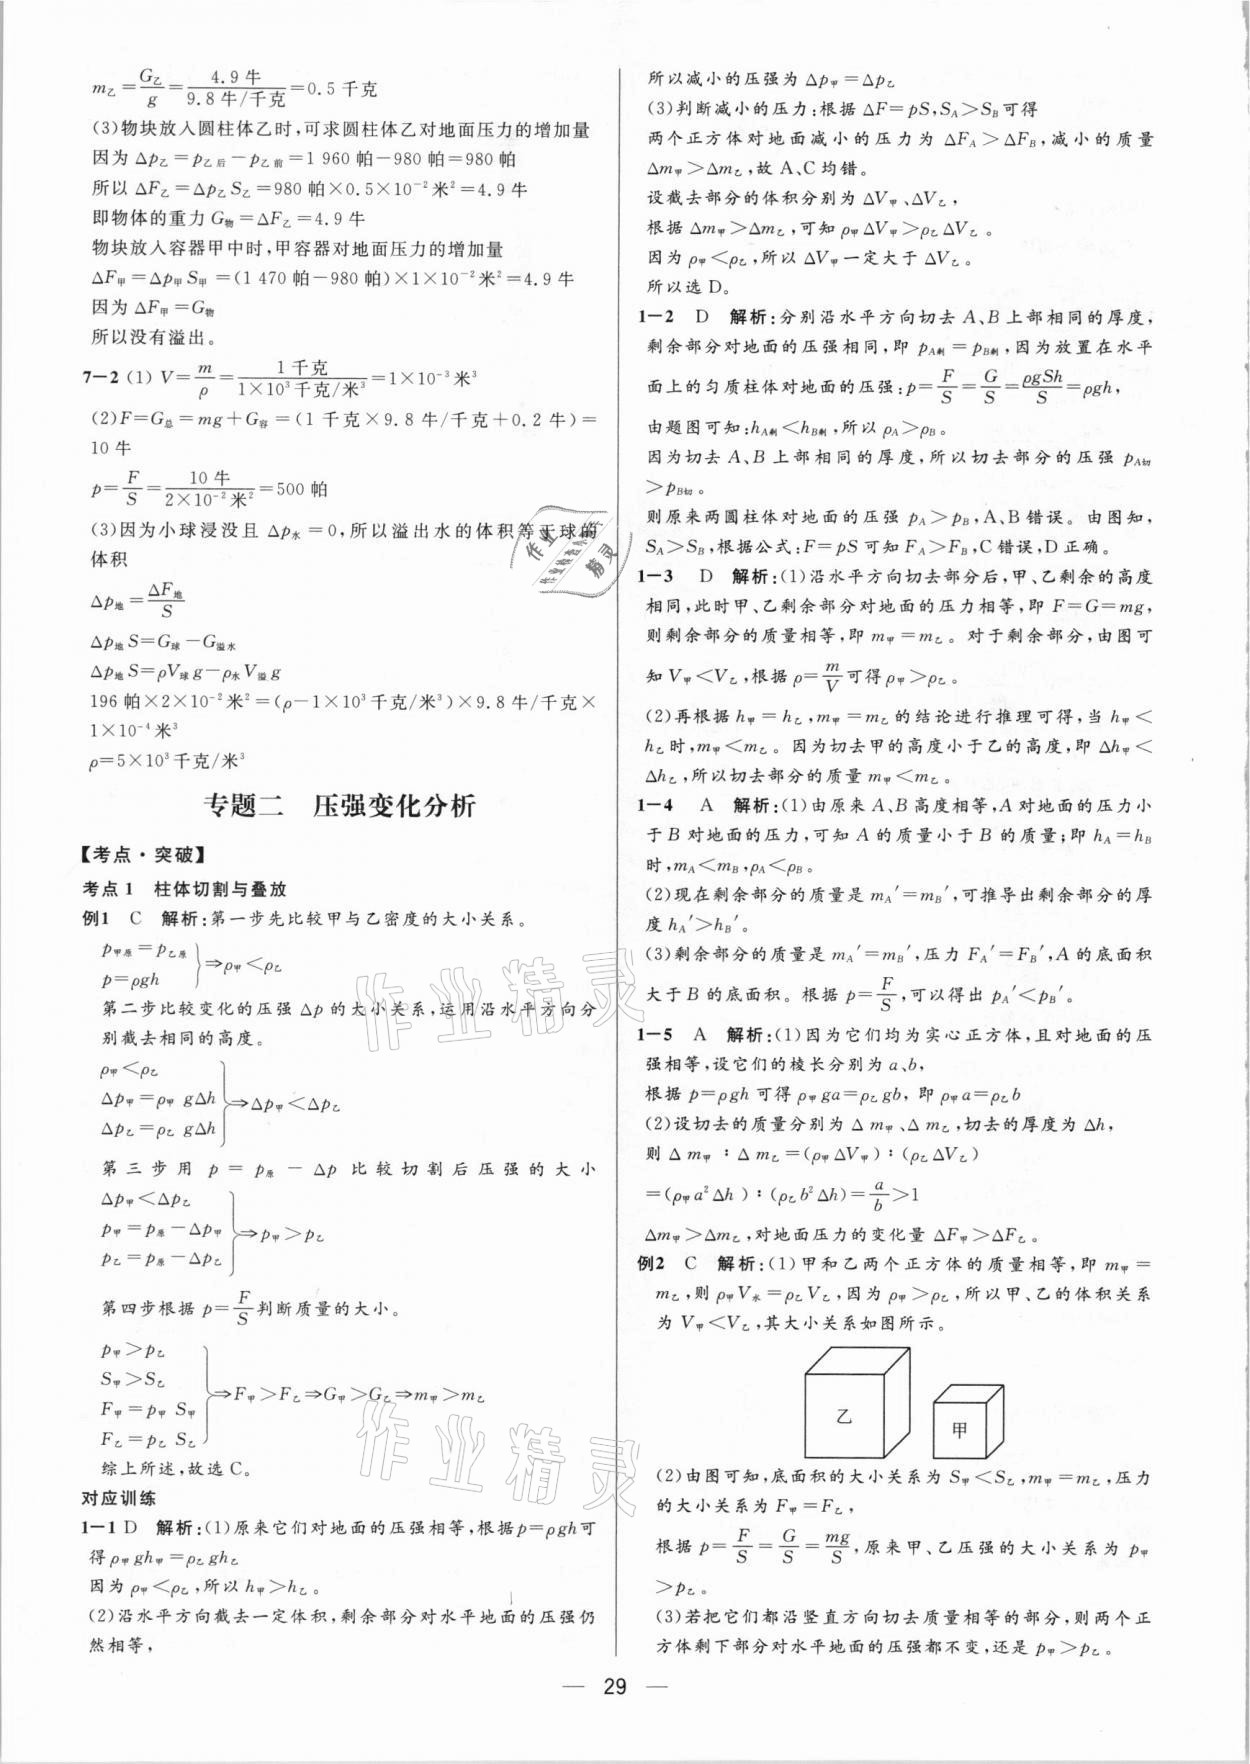 m乙=G乙/g=4.9牛/9.8牛/千克=0.5千克
(3)物块放入圆柱体乙时,可求圆柱体乙对地面压力的增加量
因为 Δp乙=p乙后-p乙前=1 960帕-980帕=980帕
所以 ΔF乙=Δp乙S乙=980帕×0.5×10⁻²米²=4.9牛
即物体的重力G物=ΔF乙=4.9牛
物块放入容器甲中时,甲容器对地面压力的增加量
ΔF甲=Δp甲S甲=(1 470帕-980帕)×1×10⁻²米²=4.9牛
因为 ΔF甲=G物
所以没有溢出。
7-2 (1) V=m/ρ=1千克/1×10³千克/米³=1×10⁻³米³
(2)F=G总=mg+G容=(1千克×9.8牛/千克+0.2牛)=
10牛
p=F/S=10牛/2×10⁻²米²=500帕
(3)因为小球浸没且 Δp水=0,所以溢出水的体积等于球的
体积
Δp地=ΔF地/S
Δp地S=G球-G溢水
Δp地S=ρV球g-ρ水V溢g
196帕×2×10⁻²米²=(ρ-1×10³千克/米³)×9.8牛/千克×
1×10⁻⁴米³
ρ=5×10³千克/米³
专题二 压强变化分析
【考点·突破】
考点1 柱体切割与叠放
例1 C 解析:第一步先比较甲与乙密度的大小关系。
p甲原=p乙原
p=ρgh
⇒ρ甲<ρ乙
第二步比较变化的压强 Δp的大小关系,运用沿水平方向分
别截去相同的高度。
ρ甲<ρ乙
Δp甲=ρ甲gΔh
Δp乙=ρ乙gΔh
⇒Δp甲<Δp乙
第三步用 p=p原-Δp 比较切割后压强的大小
Δp甲<Δp乙
p甲=p原-Δp甲
p乙=p原-Δp乙
⇒p甲>p乙
第四步根据 p=F/S判断质量的大小。
p甲>p乙
S甲>S乙
F甲=p甲S甲
F乙=p乙S乙
⇒F甲>F乙⇒G甲>G乙⇒m甲>m乙
综上所述,故选C。
对应训练
1-1 D 解析:(1)原来它们对地面的压强相等,根据p=ρgh可
得ρ甲gh甲=ρ乙gh乙
因为ρ甲<ρ乙,所以h甲>h乙。
(2)沿水平方向截去一定体积,剩余部分对水平地面的压强仍
然相等,
所以减小的压强为 Δp甲=Δp乙
(3)判断减小的压力:根据 ΔF=pS,S_A>S_B可得
两个正方体对地面减小的压力为 ΔF_A>ΔF_B,减小的质量
Δm甲>Δm乙,故A、C均错。
设截去部分的体积分别为 ΔV甲、ΔV乙,
根据 Δm甲>Δm乙,可知ρ甲ΔV甲>ρ乙ΔV乙。
因为ρ甲<ρ乙,所以 ΔV甲一定大于 ΔV乙。
所以选D。
1-2 D 解析:分别沿水平方向切去A、B上部相同的厚度,
剩余部分对地面的压强相同,即 p_A剩=p_B剩,因为放置在水平
面上的匀质柱体对地面的压强:p=F/S=G/S=ρgSh/S=ρgh,
由题图可知:h_A剩<h_B剩,所以ρ_A>ρ_B。
因为切去A、B上部相同的厚度,所以切去部分的压强 p_A切
>p_B切。
则原来两圆柱体对地面的压强 p_A>p_B,A、B错误。由图知,
S_A>S_B,根据公式:F=pS可知F_A>F_B,C错误,D正确。
1-3 D 解析:(1)沿水平方向切去部分后,甲、乙剩余的高度
相同,此时甲、乙剩余部分对地面的压力相等,即 F=G=mg,
则剩余部分的质量相等,即m甲=m乙。对于剩余部分,由图可
知V甲<V乙,根据ρ=m/V可得ρ甲>ρ乙。
(2)再根据h甲=h乙,m甲=m乙的结论进行推理可得,当h甲<
h乙时,m甲<m乙。因为切去甲的高度小于乙的高度,即 Δh甲<
Δh乙,所以切去部分的质量m甲<m乙。
1-4 A 解析:(1)由原来A、B高度相等,A对地面的压力小
于B对地面的压力,可知A的质量小于B的质量;即h_A=h_B
时,m_A<m_B,ρ_A<ρ_B。
(2)现在剩余部分的质量是m_A′=m_B′,可推导出剩余部分的厚
度h_A′>h_B′。
(3)剩余部分的质量是m_A′=m_B′,压力F_A′=F_B′,A的底面积
大于B的底面积。根据p=F/S,可以得出p_A′<p_B′。
1-5 A 解析:(1)因为它们均为实心正方体,且对地面的压
强相等,设它们的棱长分别为a、b,
根据 p=ρgh可得ρ甲ga=ρ乙gb,即ρ甲a=ρ乙b
(2)设切去的质量分别为 Δm甲、Δm乙,切去的厚度为 Δh,
则 Δm甲:Δm乙=(ρ甲ΔV甲):(ρ乙ΔV乙)
=(ρ甲a²Δh):(ρ乙b²Δh)=a/b>1
Δm甲>Δm乙,对地面压力的变化量 ΔF甲>ΔF乙。
例2 C 解析:(1)甲和乙两个正方体的质量相等,即m甲=
m乙,则ρ甲V水=ρ乙V乙,因为ρ甲>ρ乙,所以甲、乙的体积关系
为V甲<V乙,其大小关系如图所示。
乙
甲
(2)由图可知,底面积的大小关系为S甲<S乙,m甲=m乙,压力
的大小关系为F甲=F乙,
根据 p=F/S=G/S=mg/S,原来甲、乙压强的大小关系为p甲
>p乙。
(3)若把它们都沿竖直方向切去质量相等的部分,则两个正
方体剩下部分对水平地面的压强都不变,还是p甲>p乙。
— 29 —
作业精灵
作业精灵